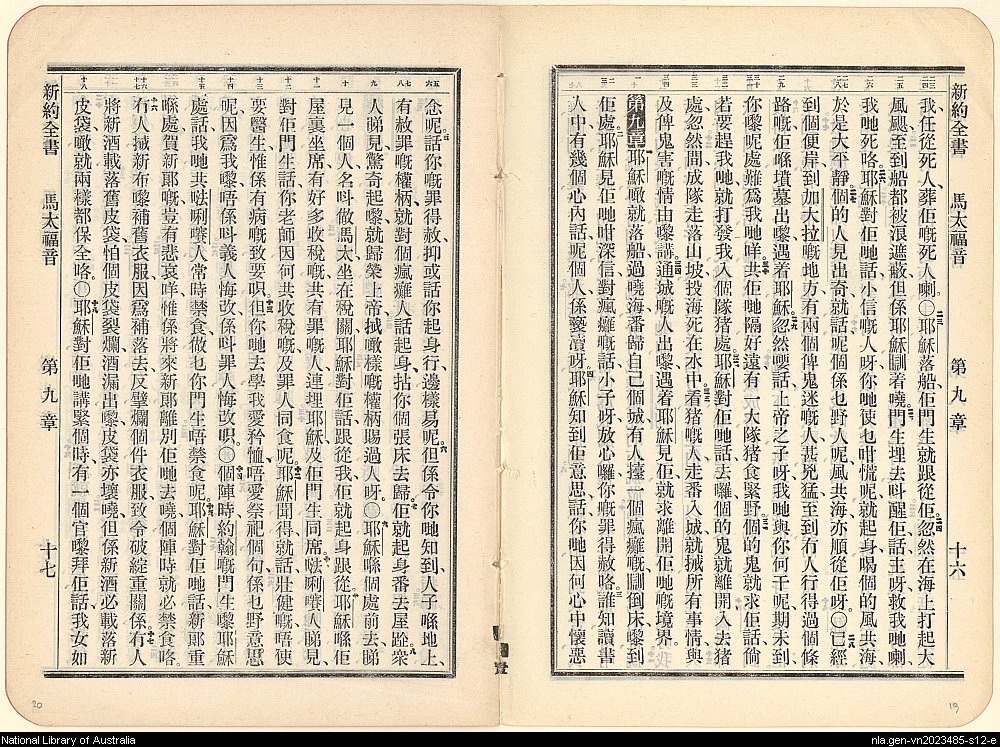 新約全書 馬太福音 第九章 十六
我、任從死人葬佢嘅死人喇。〇耶穌落船、佢門生就跟從佢。忽然在海上打起大
風颶、至到船都被浪遮蔽、但係耶穌瞓着嘵。門生埋去呌醒佢話、主呀救我哋喇、
我哋死咯。耶穌對佢哋話、小信嘅人呀、你哋使乜咁慌呢、就起身喝個的風共海、
於是大平靜。個的人見出奇、就話、呢個係乜野人呢、風共海亦順從佢呀。〇已經
到個便岸、到加大拉嘅地方、有兩個俾鬼迷嘅人、甚兇猛、至到冇人行得過個條
路嘅、佢喺墳墓出嚟、遇着耶穌。忽然嘤話、上帝之子呀、我哋與你何干呢、期未到
你嚟呢處難爲我哋咩。共佢哋隔好遠、有一大隊猪食緊野。個的鬼就求佢話、倘
若要趕我哋、就打發我入個隊猪處。耶穌對佢哋話、去囉、個的鬼就離開、入去猪
處、忽然間成隊走落山坡、投海、死在水中。看猪嘅人走番入城、就捄所有事情、與
及俾鬼害嘅情由嚟講。通城嘅人出嚟、遇着耶穌、見佢就求離開佢哋嘅境界。
第九章 耶穌噉就落船、過嘵海、番歸自己個城。有人擡一個瘋癱嘅、瞓倒床嚟到
佢處、耶穌見佢哋咁深信、對瘋癱嘅話、小子呀、放心囉、你嘅罪得赦咯。誰知讀書
人中有幾個心內話、呢個人係褻瀆呀。耶穌知到佢意思、話、你哋因何心中懷惡
念呢。話你嘅罪得赦、抑或話你起身行、邊樣易呢。但係令你哋知到人子喺地上、
有赦罪嘅權柄、就對個瘋癱人話、起身、拈你個張床去歸。佢就起身番去屋跧。衆
人睇見、驚奇起嚟、就歸榮上帝、捄噉樣嘅權柄賜過人呀。〇耶穌喺個處前去、睇
見一個人、名呌做馬太、坐在稅關、耶穌對佢話、跟從我、佢就起身跟從。耶穌喺佢
屋裏坐席、有好多收稅嘅、共有罪嘅人、連埋耶穌及佢門生同席。𠵽唎嚽人睇見、
對佢門生話、你老師因何共收稅嘅、及罪人同食呢。耶穌聞得就話、壯健嘅唔使
要醫生、惟係有病嘅致要呮。但你哋去學我愛矜恤、唔愛祭祀個句係乜野意思
呢、因爲我嚟、唔係呌義人悔改、係呌罪人悔改呮。〇個陣時約翰嘅門生嚟耶穌
處話、我哋共𠵽唎嚽人常時禁食、做乜你門生唔禁食呢。耶穌對佢哋話、新郎重
喺處、賀新郎嘅豈有悲哀咩、惟係將來新郎離別佢哋去嘵、個陣時就必禁食咯。
有人捄新布嚟補舊衣服、因爲補落去、反擘爛個件衣服、致令破綻重關係。冇人
將新酒載落舊皮袋、怕個皮袋裂爛、酒漏出嚟、皮袋亦壞嘵、但係新酒必載落新
皮袋、噉就兩樣都保全咯。〇耶穌對佢哋講緊個時、有一個官嚟拜佢話、我女如
新約全書 馬太福音 第九章 十七
20
19
National Library of Australia
nla.gen-vn2023485-s12-e